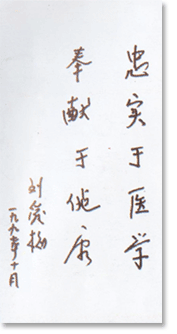 忠实于医学
奉献于健康
刘俊梅
一九九七年十月